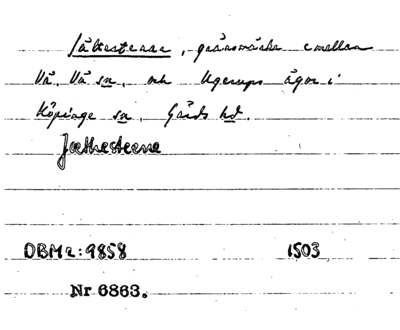 Jättestenene, gränsmärke emellan
Vä, Vä sn, och Ugerups ägor i
Köpinge sn, Gärds hd.
Jæthestene
DBM 2:9858 1503
Nr 6863.